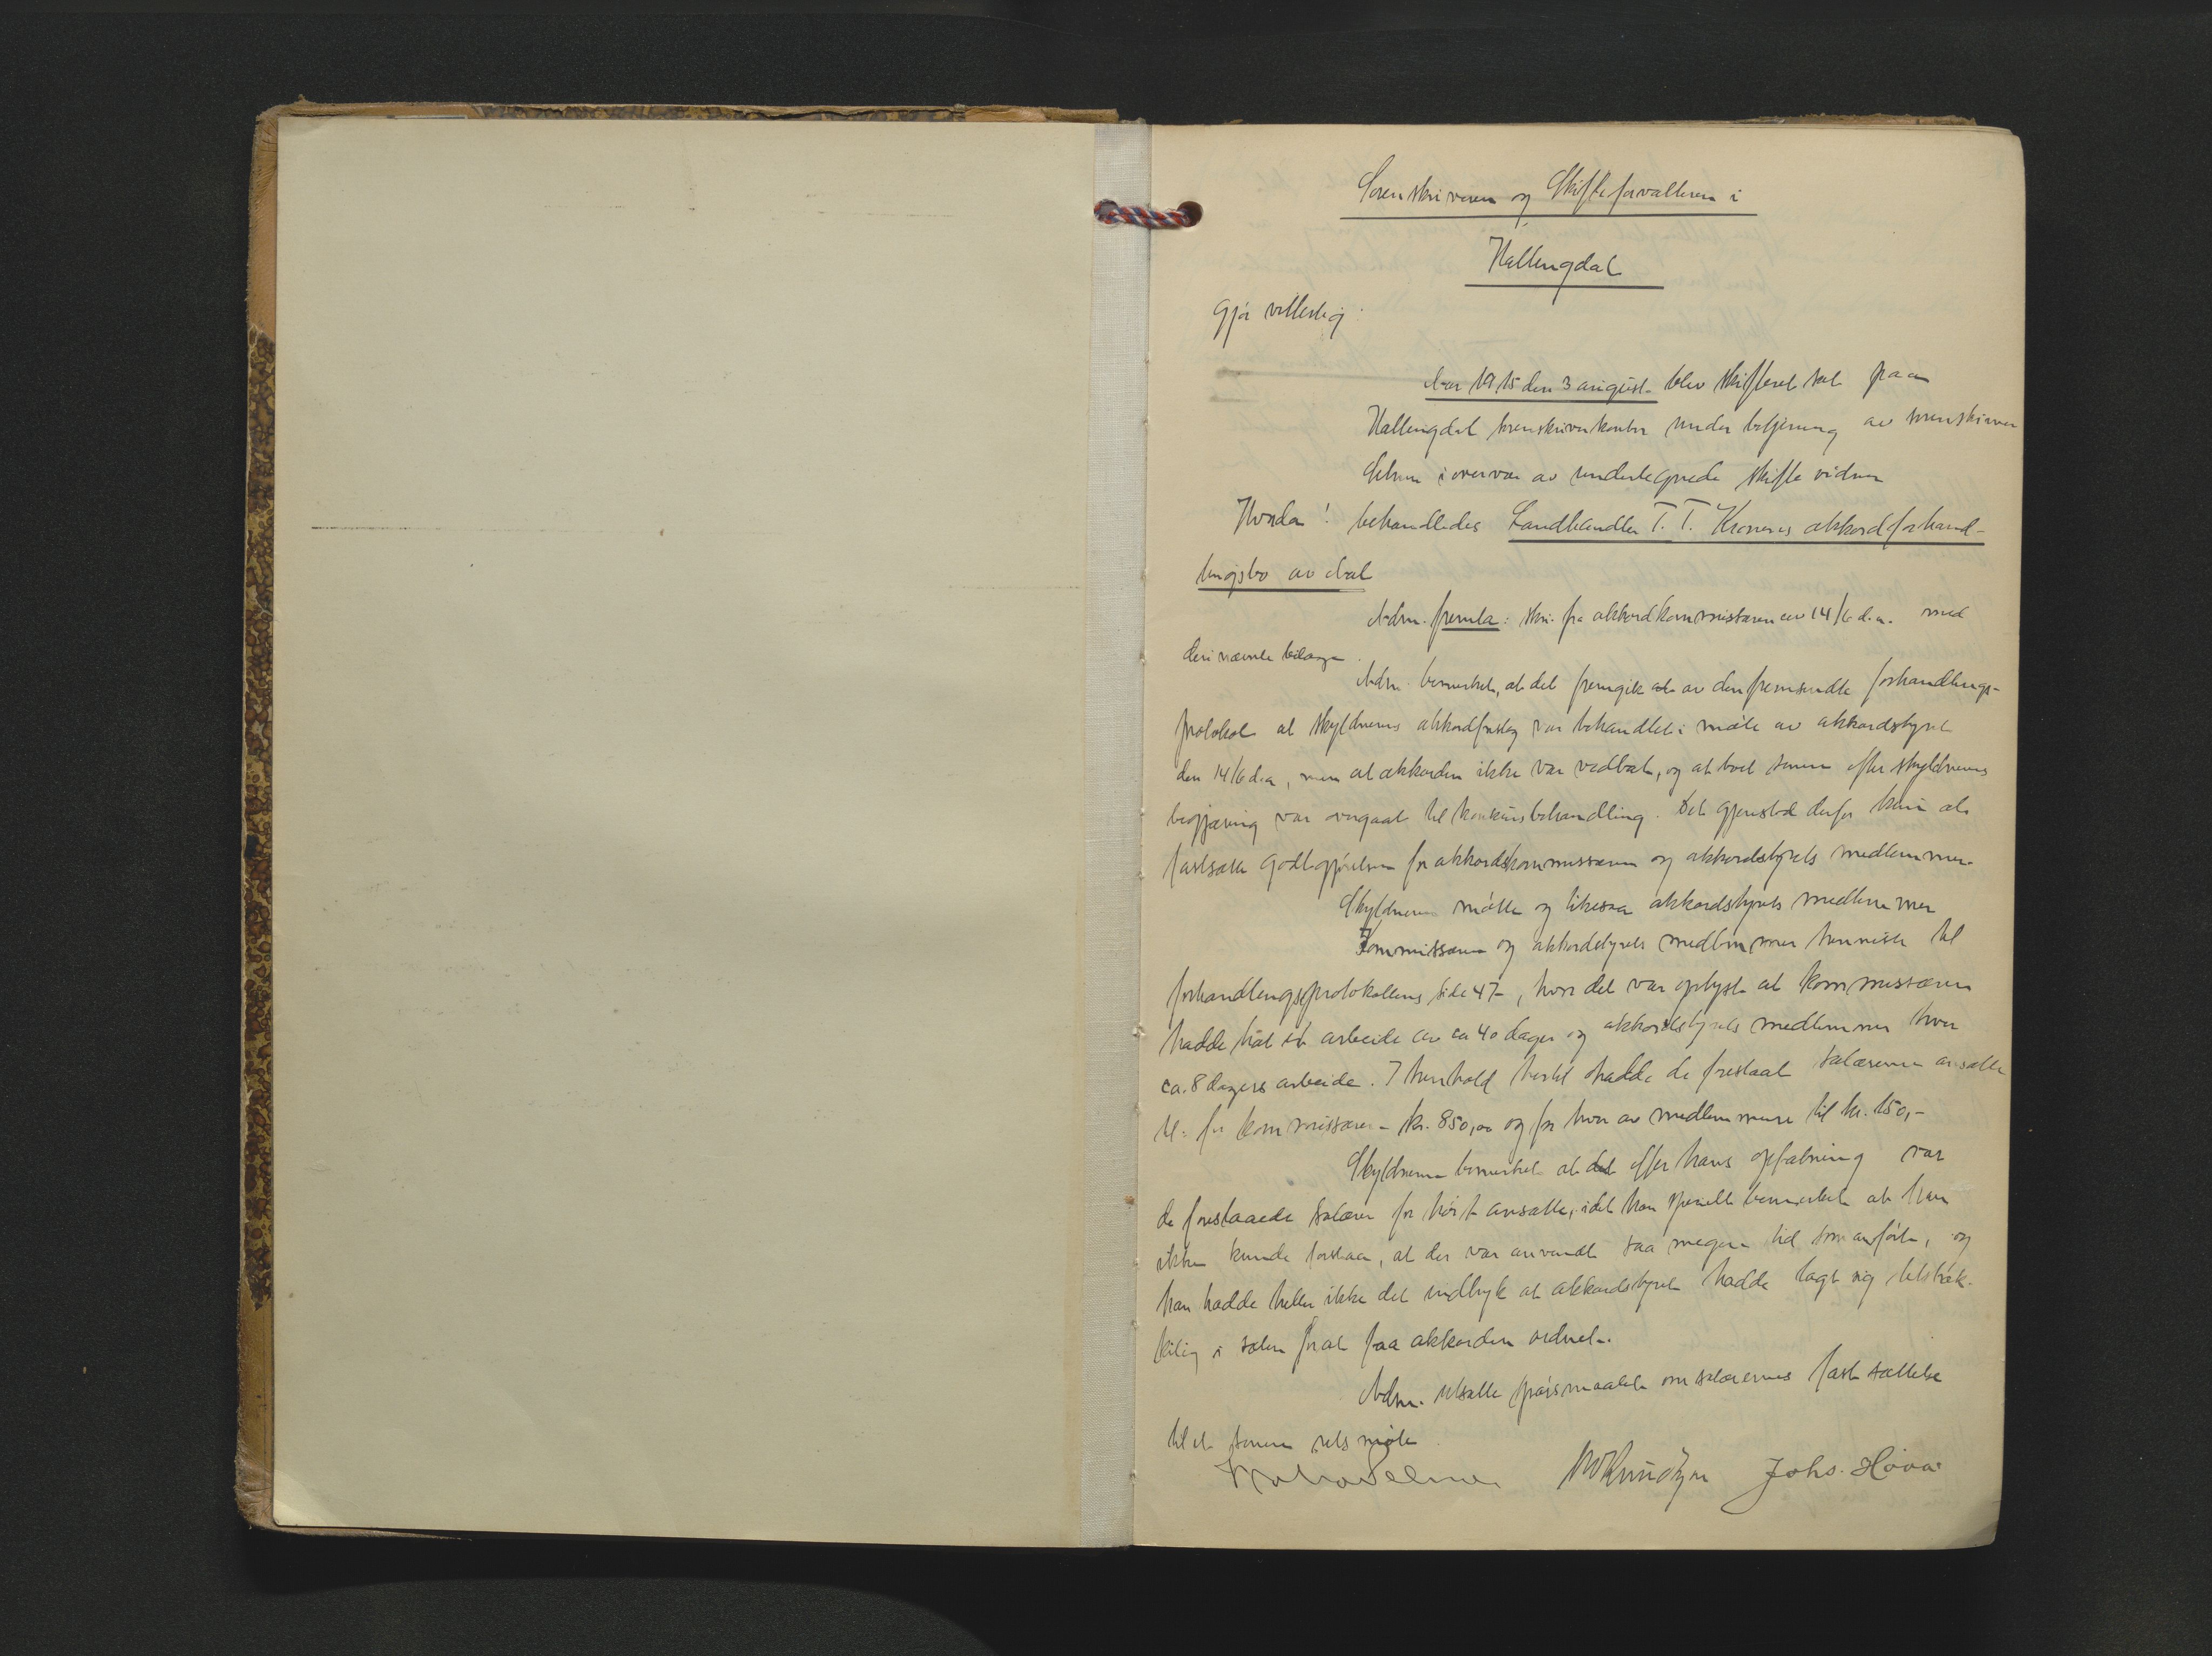 Sorenskriveren og Skifteforvalteren i
Hallingdal
Gjør vitterlig:
Aar 1915 den 3 august blev skifteret sat paa
Hallingdal sorenskriverkontor under betjening av sorenskriver
i overvær av undertegnede skiftevidner
Hvorda: behandledes Landhandler T. T. akkordforhand-
lingsbo av Aal
Adm. fremla: skr. fra akkordkommissæren av 14/6 d.a. med
deri nævnte bilage.
Adm. bemerket, at det fremgik av den fremsendte forhandlings-
protokol at skyldnerens akkordforslag var behandlet i møte av akkordstyret
den 14/6 d.a, men at akkorden ikke var vedtat, og at boet senere efter skyldnerens
begjæring var overgaat til konkursbehandling. Det gjenstod derfor kun at
fastsætte godtgjørelsen for akkordskommissæren og akkordstyrets medlemmer.
Skyldneren møtte og likesaa akkordstyrets medlemmer
Kommissæren og akkordstyrets medlemmer henviste til
forhandlingsprotokollens side 47, hvor det var oplyst at kommissæren
hadde hat et arbeide av ca 40 dager og akkordstyrets medlemmer hver
ca. 8 dagers arbeide. I henhold hertil hadde de foreslaat salærerne ansatte
til: for kommissæren kr. 850,00 og for hver av medlemmene til kr. 150,-
Skyldneren bemerket at det efter hans opfatning var
de foreslaaede salærer for høit ansatte, idet han specielt bemerket at han
ikke kunde forstaa, at der var anvendt saa megen tid som anført, og
han hadde heller ikke det indtryk at akkordstyret hadde lagt sig tilstræk-
kelig i selen for at faa akkorden ordnet.
Adm. utsatte spørsmaalet om salærernes fastsættelse
til et senere retsmøte
Johs. Hova